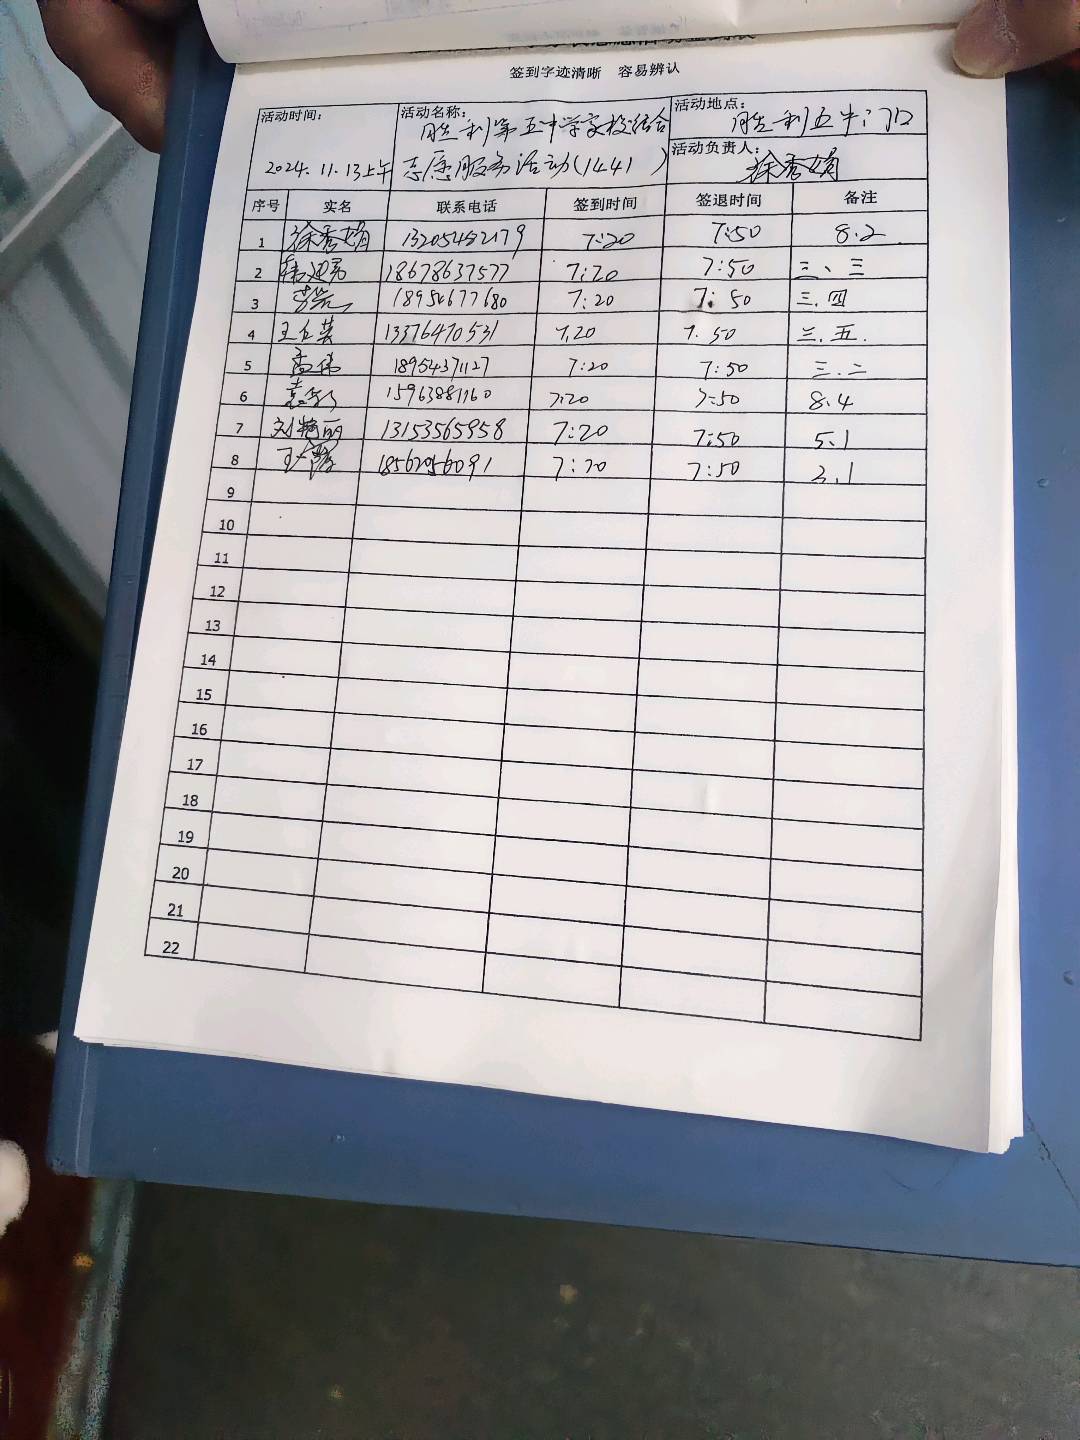 签到字迹清晰 容易辨认
活动时间: 活动名称: 胜利第五中学家校结合 活动地点: 胜利五中门口
2024.11.13上午 志愿服务活动(1441) 活动负责人: 徐秀娟
序号 实名 联系电话 签到时间 签退时间 备注
1 徐秀娟 13205482179 7:20 7:50 8.2
2 18678637577 7:20 7:50 三、三
3 18954677680 7:20 7:50 三.四
4 王仁英 13376470531 7.20 7.50 三.五.
5 高伟 18954371127 7:20 7:50 三.二
6 15963881760 7:20 7:50 8.4
7 刘艳丽 13153565958 7:20 7:50 5.1
8 18562056091 7:20 7:50 3.1
9
10
11
12
13
14
15
16
17
18
19
20
21
22